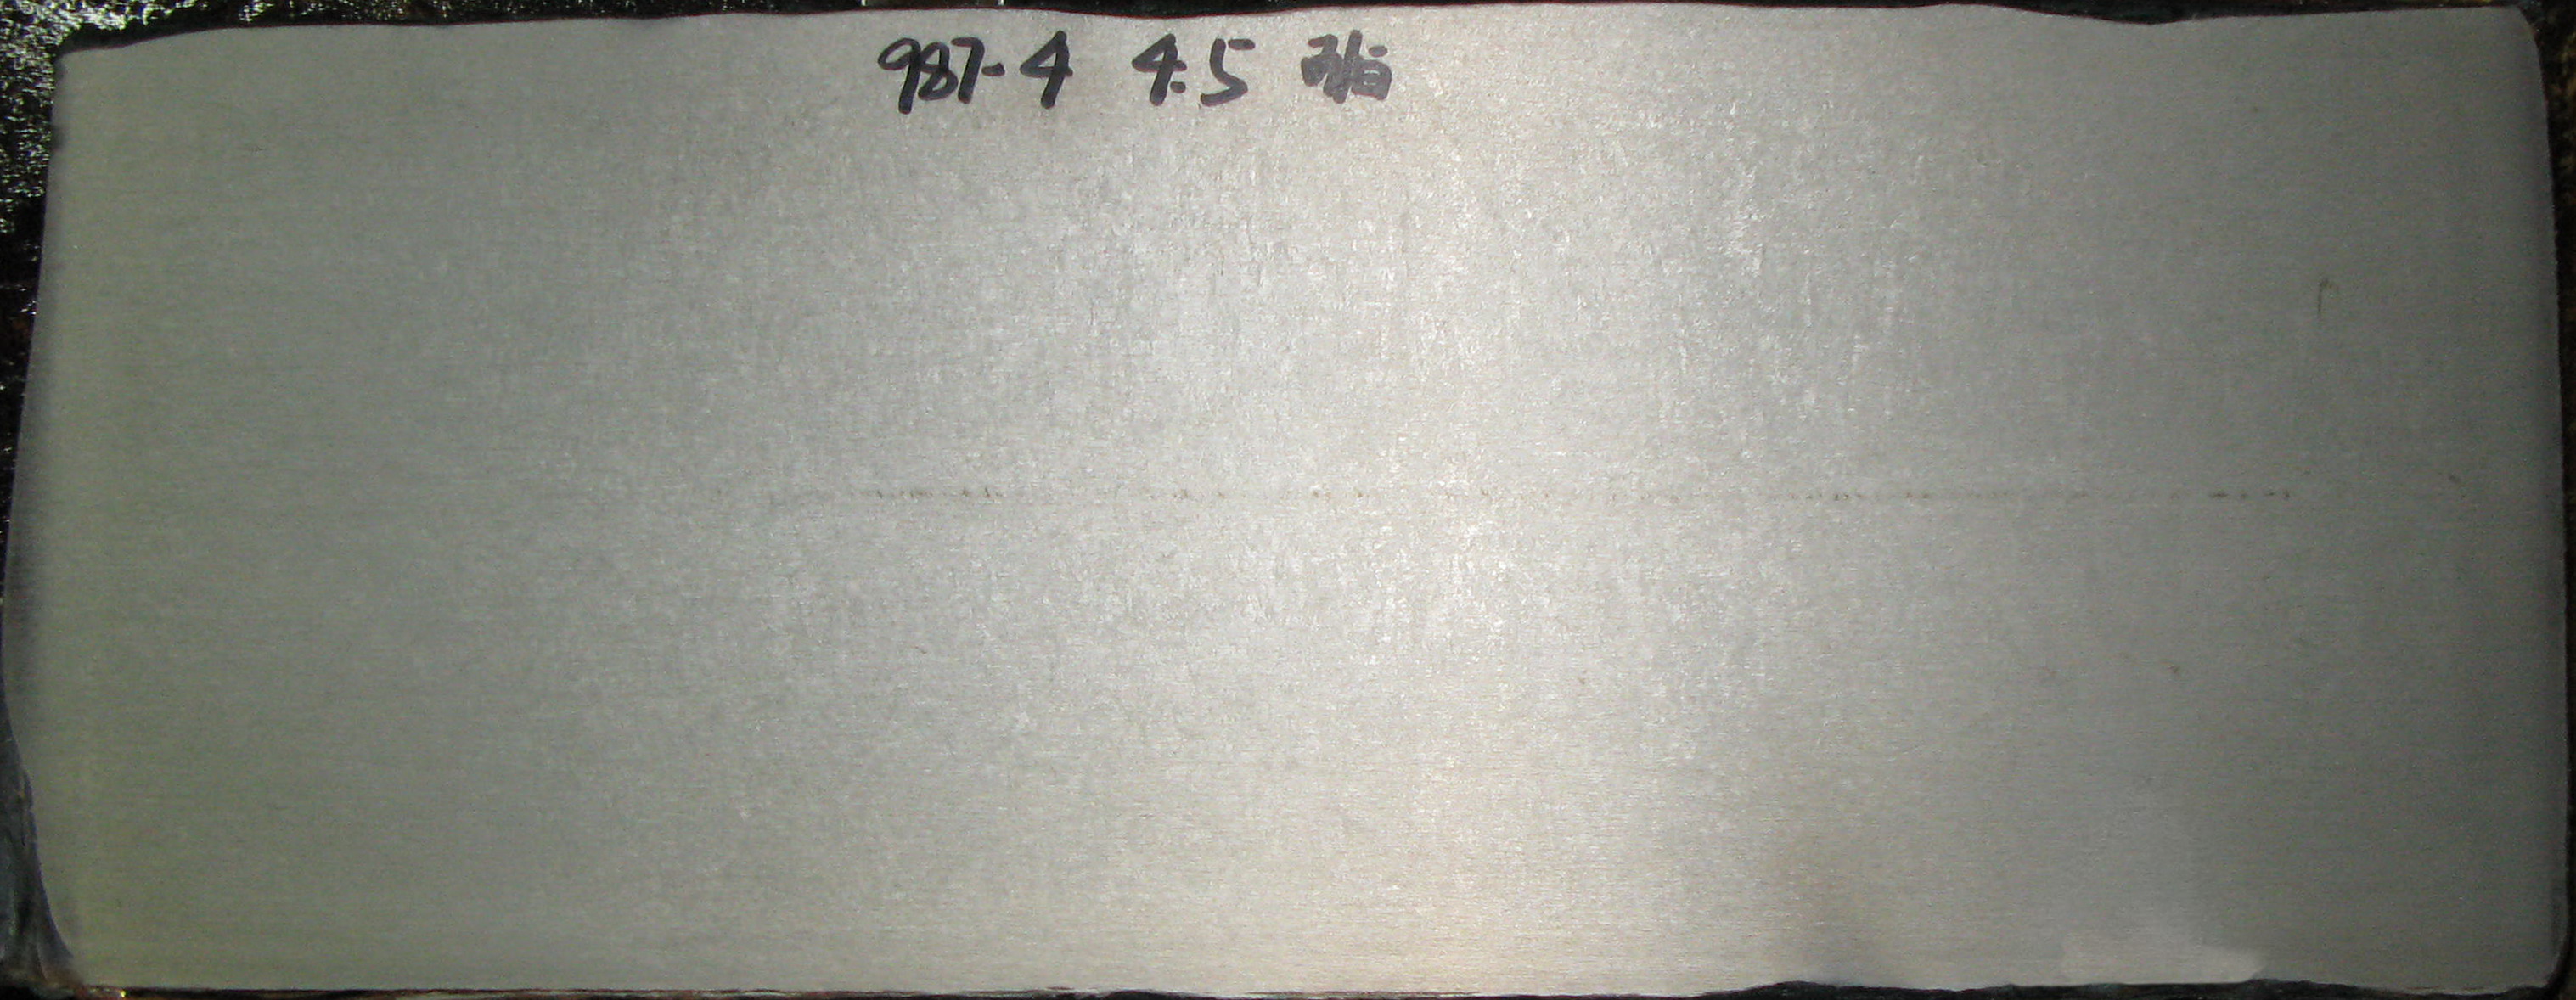 987-4 4.5